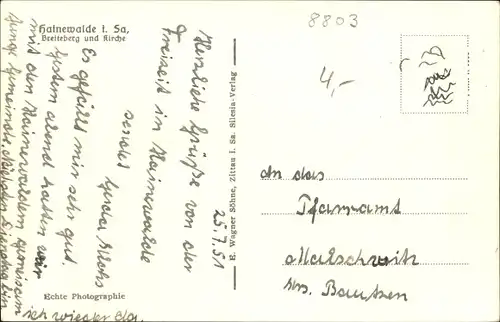 Hainewalde i. Sa,
Breiteberg und Kirche
8803
4,-
25.7.51
Herzliche Grüße von der
Freizeit in Hainewalde
sendet
Gerda
Es gefällt mir sehr gut.
Gestern abend hatten wir
mit den Hainewaldern gemeinsam
Junge Gemeinde. Dienstag bin
ich wieder da.
E. Wagner Söhne, Zittau i. Sa. Silesia-Verlag
Echte Photographie
An das
Pfarramt
Malschwitz
Krs. Bautzen